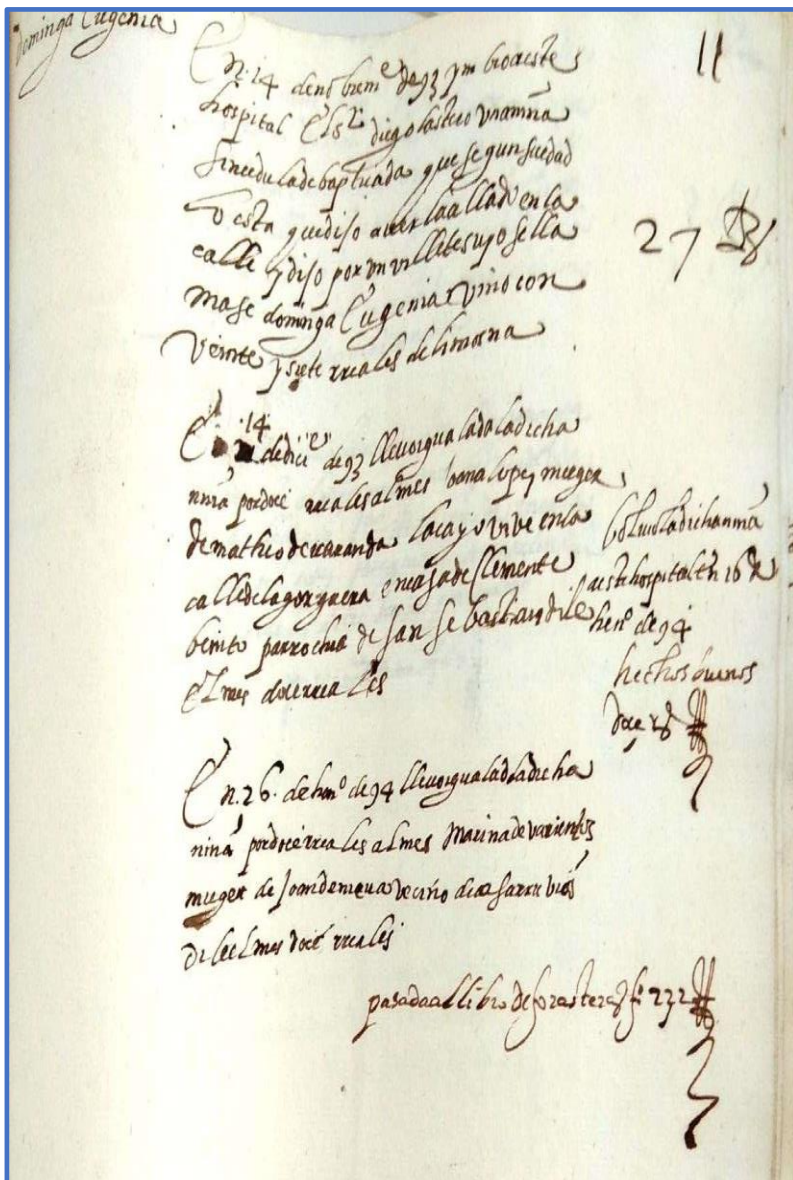 dominga Eugenia
11
En 14 de nobiem^e de 93 ymbio a este
hospital El s^r diego lasteo una niña
sin cedula de baptizada que segun su edad
lo esta que dijo averla allado en la
calle y dijo por un villete suyo se lla
mase dominga Eugenia vino con
Veinte y siete rreales de limosna
27 Rs
En 14 de dici^e de 93 llevo igualada la dicha
niña por doce rreales al mes Joana lopez muger
de matheo de rraranda lacayo vive en la
calle de la gorguera en casa de clemente
benito parrochia de san sebastian dile
El mes doce rreales
bolvio la dicha niña
a este hospital En 16 de
hen^o de 94
hechos buenos
doce rs
En 26 de hen^o de 94 llevo igualada la dicha
niña por doce rreales al mes Marina de varientos
muger de Joan de mena vecino de casarruvios
dile el mes doce rreales
pasada al libro de forasteras f^o 272